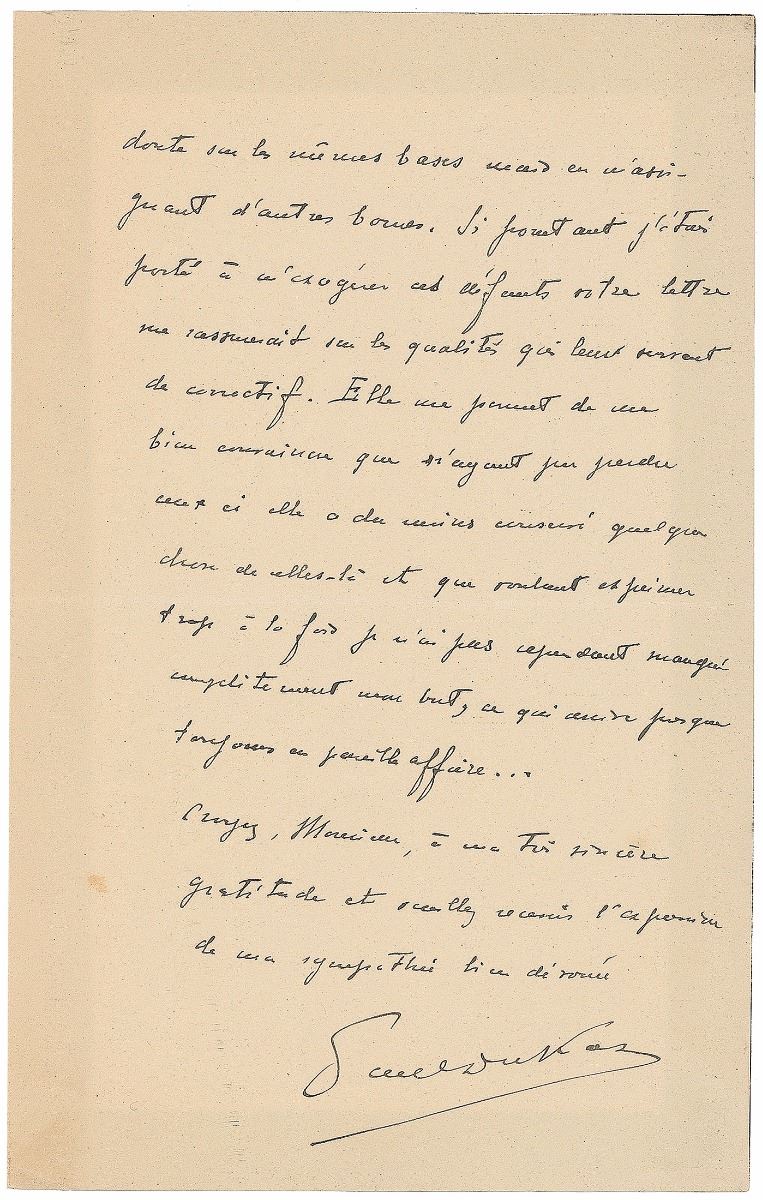 doute sur les mêmes bases mais en m'assi-
gnant d'autres bornes. Si pourtant j'étais
porté à m'exagérer ces défauts votre lettre
me rassurerait sur les qualités qui leur servent
de correctif. Elle me permet de me
bien convaincre que n'ayant pu perdre
ceux ci elle a du moins conservé quelque
chose de celles-là et que voulant exprimer
trop à la fois je n'ai pas cependant manqué
complètement mon but, ce qui arrive presque
toujours en pareille affaire...
Croyez, Monsieur, à ma très sincère
gratitude et veuillez recevoir l'expression
de ma sympathie bien dévouée
Paul Dukas